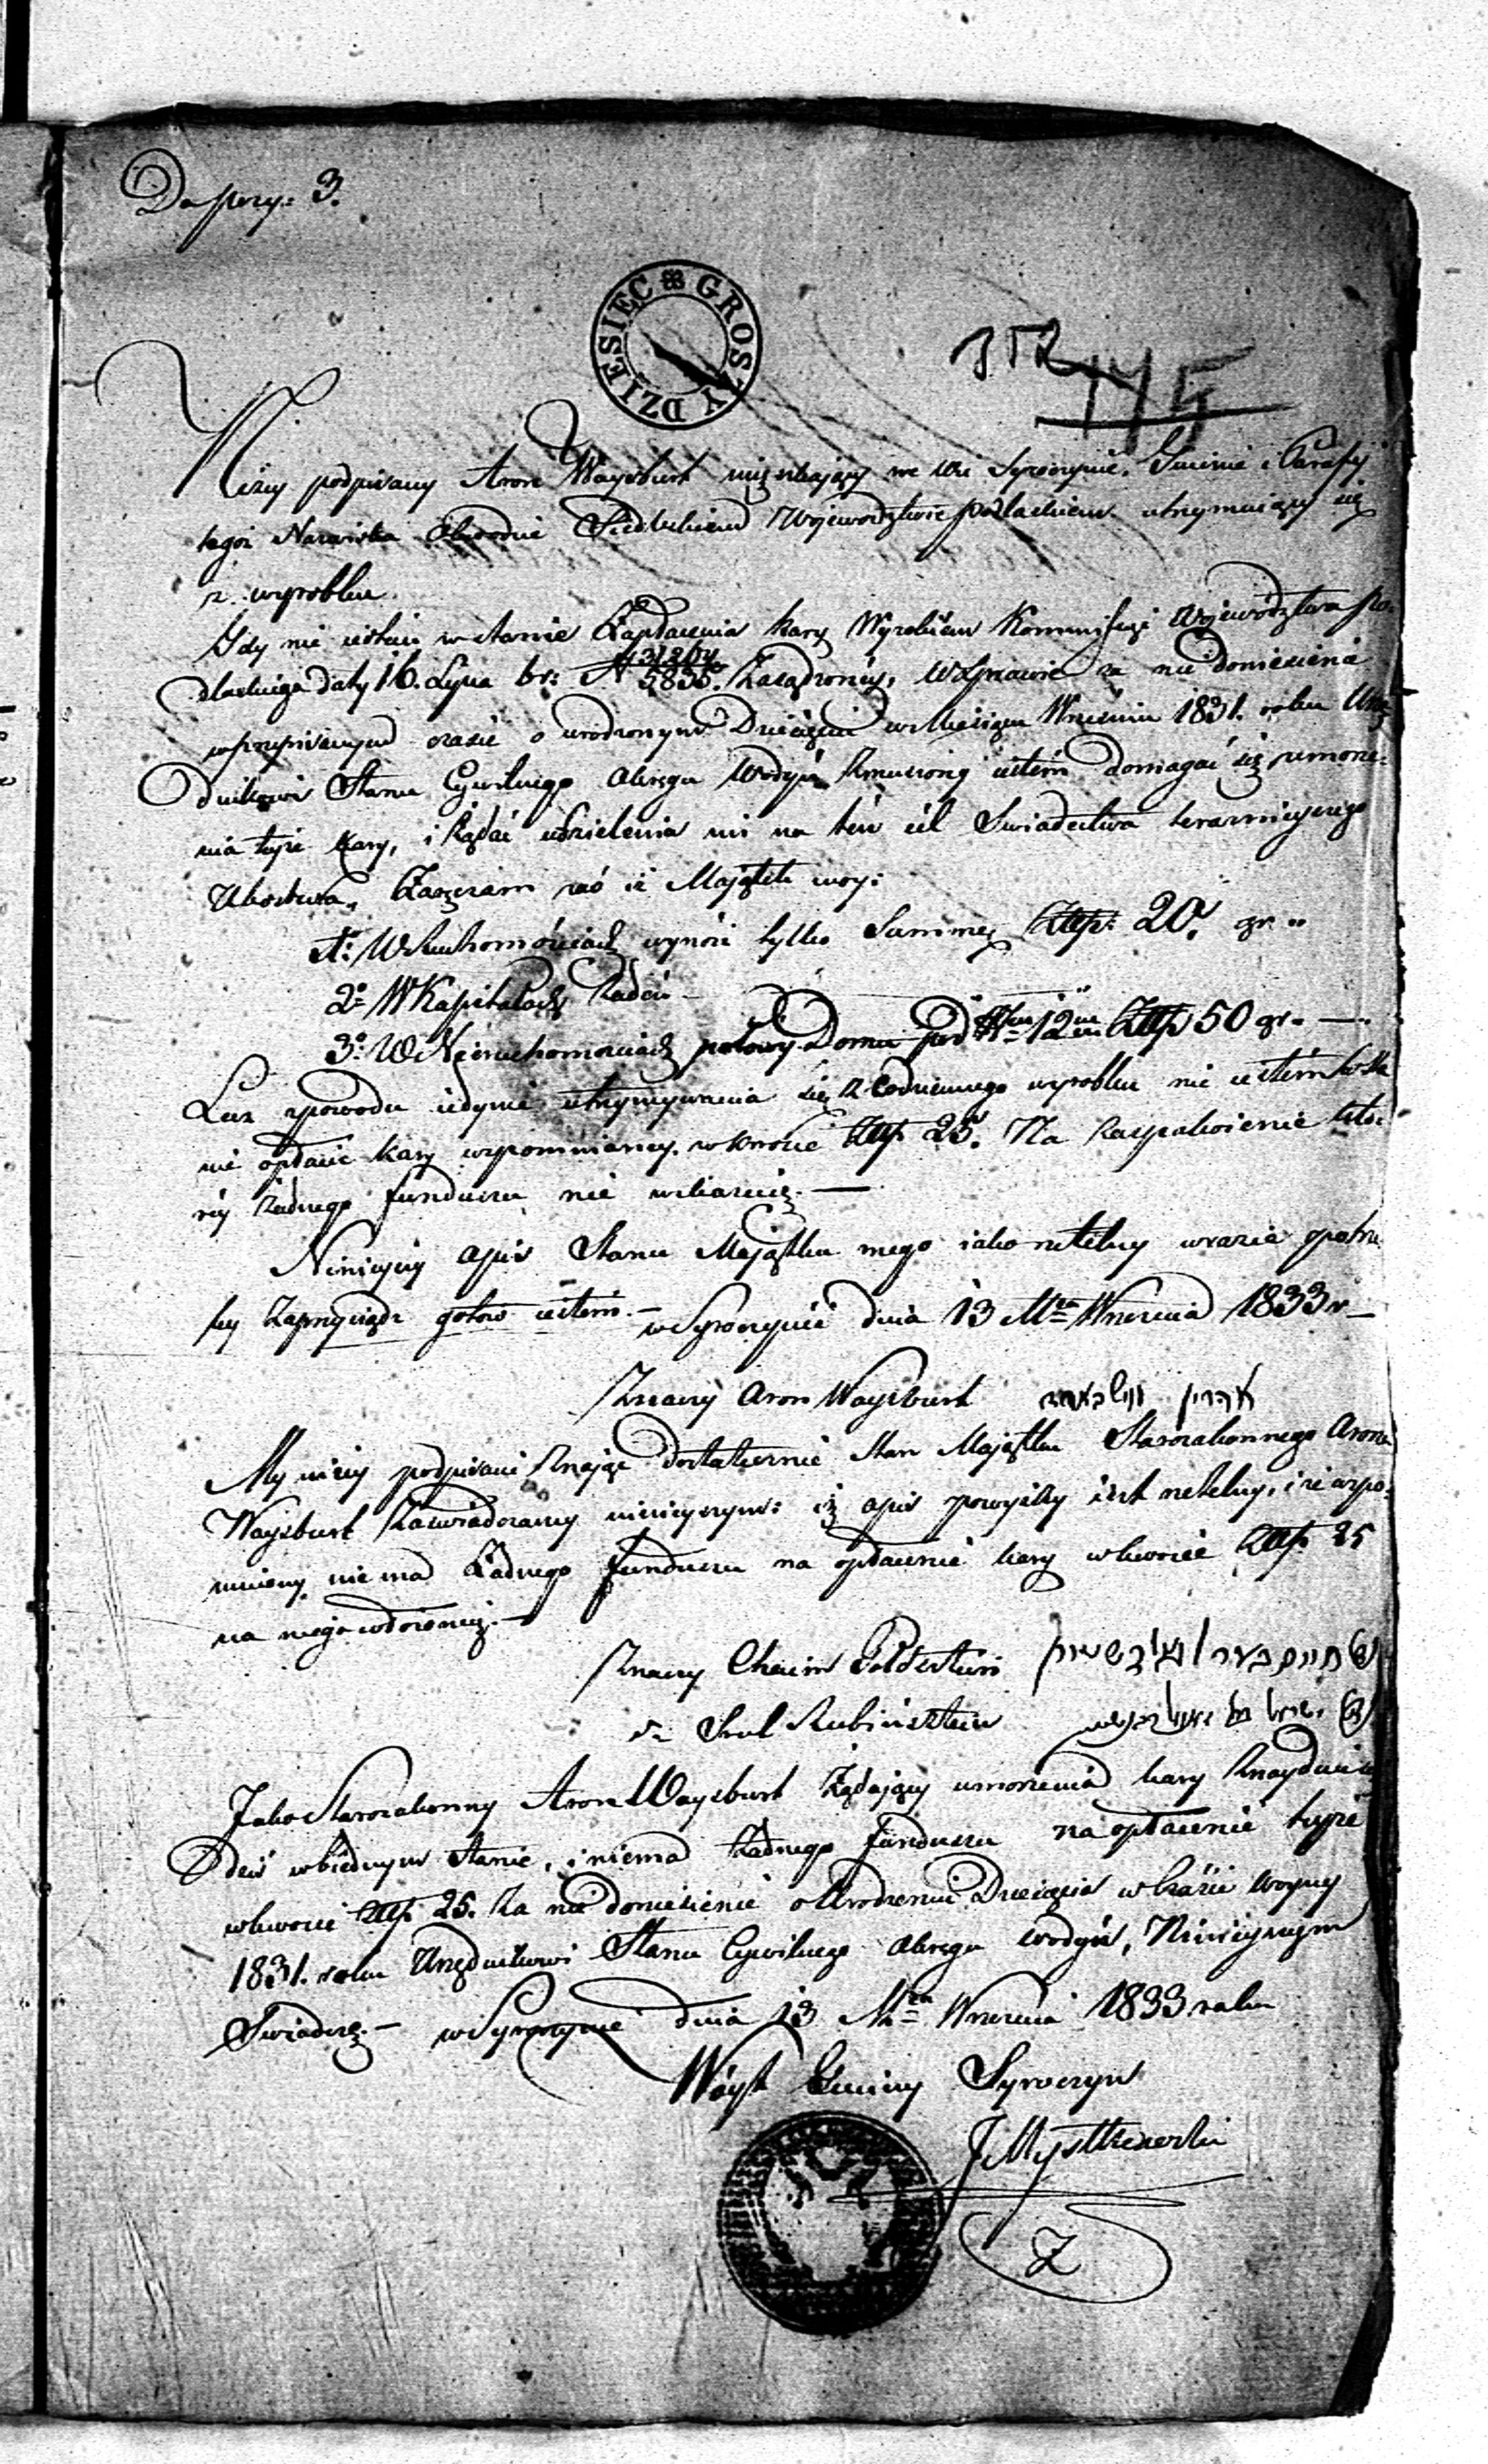 Do pozy: 3.
GROSZY DZIESIEC
152
Niżey podpisany Aron Waysburt mięszkaiący we Wsi Syroczynie, Gminie i Parafij
tegoż Nazwiska Obwodzie Siedleckiem Województwie podlaskiem utrzymuiący się
z wyrobku.
Gdy nie iestem w stanie Zapłacenia kary Wyrokiem Kommissyi Województwa Po-
dlaskiego daty 16. Lipca br: N 31204/5835. Zasądzoney, w Sprawie za nie doniesienie
w przepisanym czasie o urodzonym Dziecięciu w Miesiącu Wrześniu 1831. roku Urzę
dnikowi Stanu Cywilnego Okręgu Wodyń Zmuszony iestem domagać się umorze-
nia teyże kary, i żądać udzielenia mi na ten cel Swiadectwa
Ubostwa, iż Maiątek moy:
1o W Ruchomościach wynosi tylko Summę Złłp: 20. gr "
2o W Kapitałach żaden -
3o W Nieruchomościach połowy Domu pod Nrem 12m Złłp 50 gr. —
Lecz z powodu iedynie utrzymywania się z Codziennego wyrobku nie iestem w sta
nie opłacić kary wzpomnianey w kwocie Złłp 25. Na Zaspokoienie któ-
réy żadnego funduszu nie .—
Ninieyszy opis Stanu Maiątku mego iako rzetelny w razie potrze
by Zaprzysiądz gotow iestem.— w Syroczynie dnia 13 Mca Września 1833 r —
Znaczy Aron Waysburt אהרון ווייסבארט
My niżey podpisani Znaiąc dostatecznie Stan Maiątku Starozakonnego Arona
Waysburt Zaświadczamy ninieyszym: iż opis powyższy iest rzetelny, i że wzpo-
mniony nie ma żadnego funduszu na opłacenie kary w kwocie Złłp 25
na niego włożoney.—
Znaczy Chaim Goldsztein
Srul Rubinsztein
Jako Starozakonny Aron Waysburt Żądaiący umorzenia kary Znayduie się
dziś w biednym Stanie, i niema żadnego funduszu na opłacenie teyże
w kwocie Złłp 25. Za nie doniesienie o Urodzeniu Dziecięcia w czasie woyny
1831. roku Urzędnikowi Stanu Cywilnego Okręgu Wodyń, Ninieyszym
Swiadczę.— w Syroczynie dnia 13 Mca Września 1833 roku
Wóyt Gminy Syroczyn
J Mystkowski